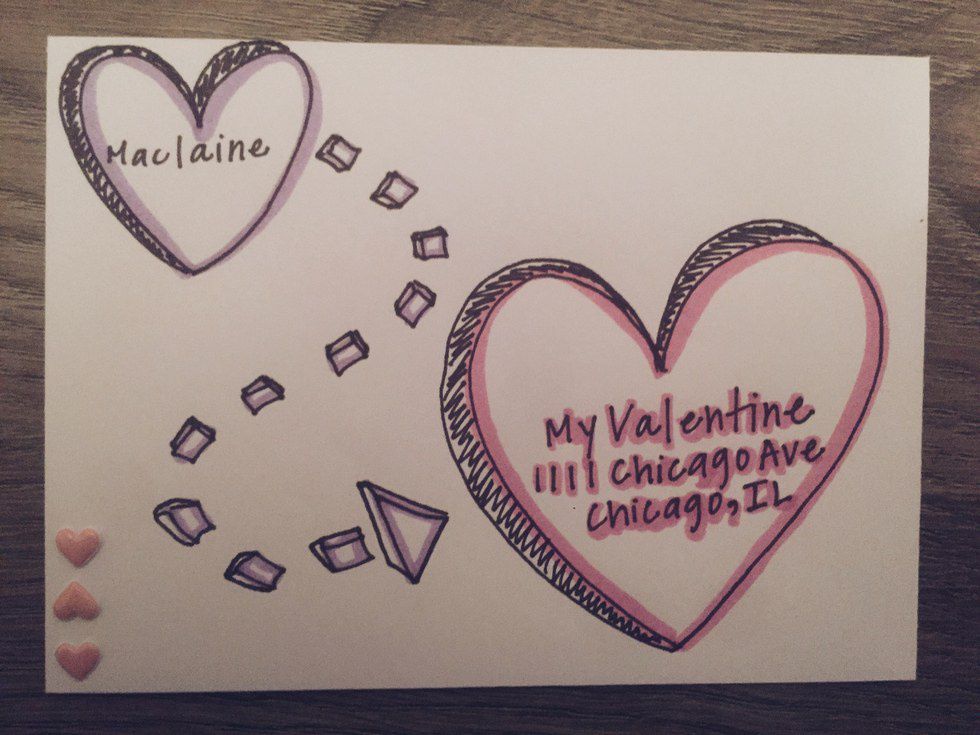 Maclaine
My Valentine
1111 Chicago Ave
Chicago, IL